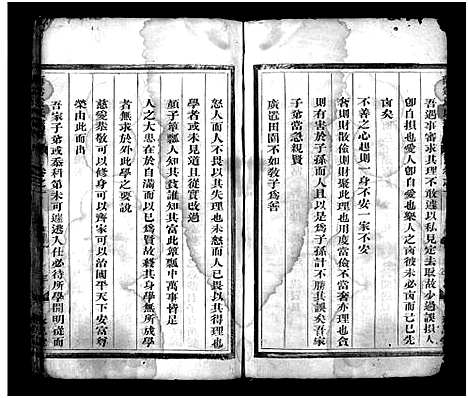 吾遇事審求其理不遽以私見定去取故少過誤損人
卽自損也愛人卽自愛也樂人之凶彼未必凶而己已先
凶矣
不善之心起則一身不安一家不安
奢則財散儉則財聚此理也用度當儉不當奢亦理也
則有害於子孫而人且以是為子孫計不勝其誤矣吾家
子弟當急親賢
廣置田園不如教子為善
怒人而人不畏以其失理也未怒而人已畏以其得理也
學者或未見道且從實改過
顏子簞瓢人知其貧誰知其富此簞瓢中萬事皆足
人之大患在於自滿而以已為賢故終其身學無所成學
者無求於外此學之要說
慈愛恭敬可以修身可以齊家可以治國平天下安富尊
榮由此而出
吾家子弟或忝科第未可遽進入仕必待所學開明從而